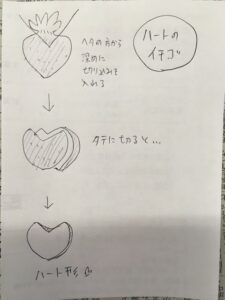 ハートの
イチゴ
ヘタの方から
深めに
切り込みを
入れる
タテに切ると...
ハート形